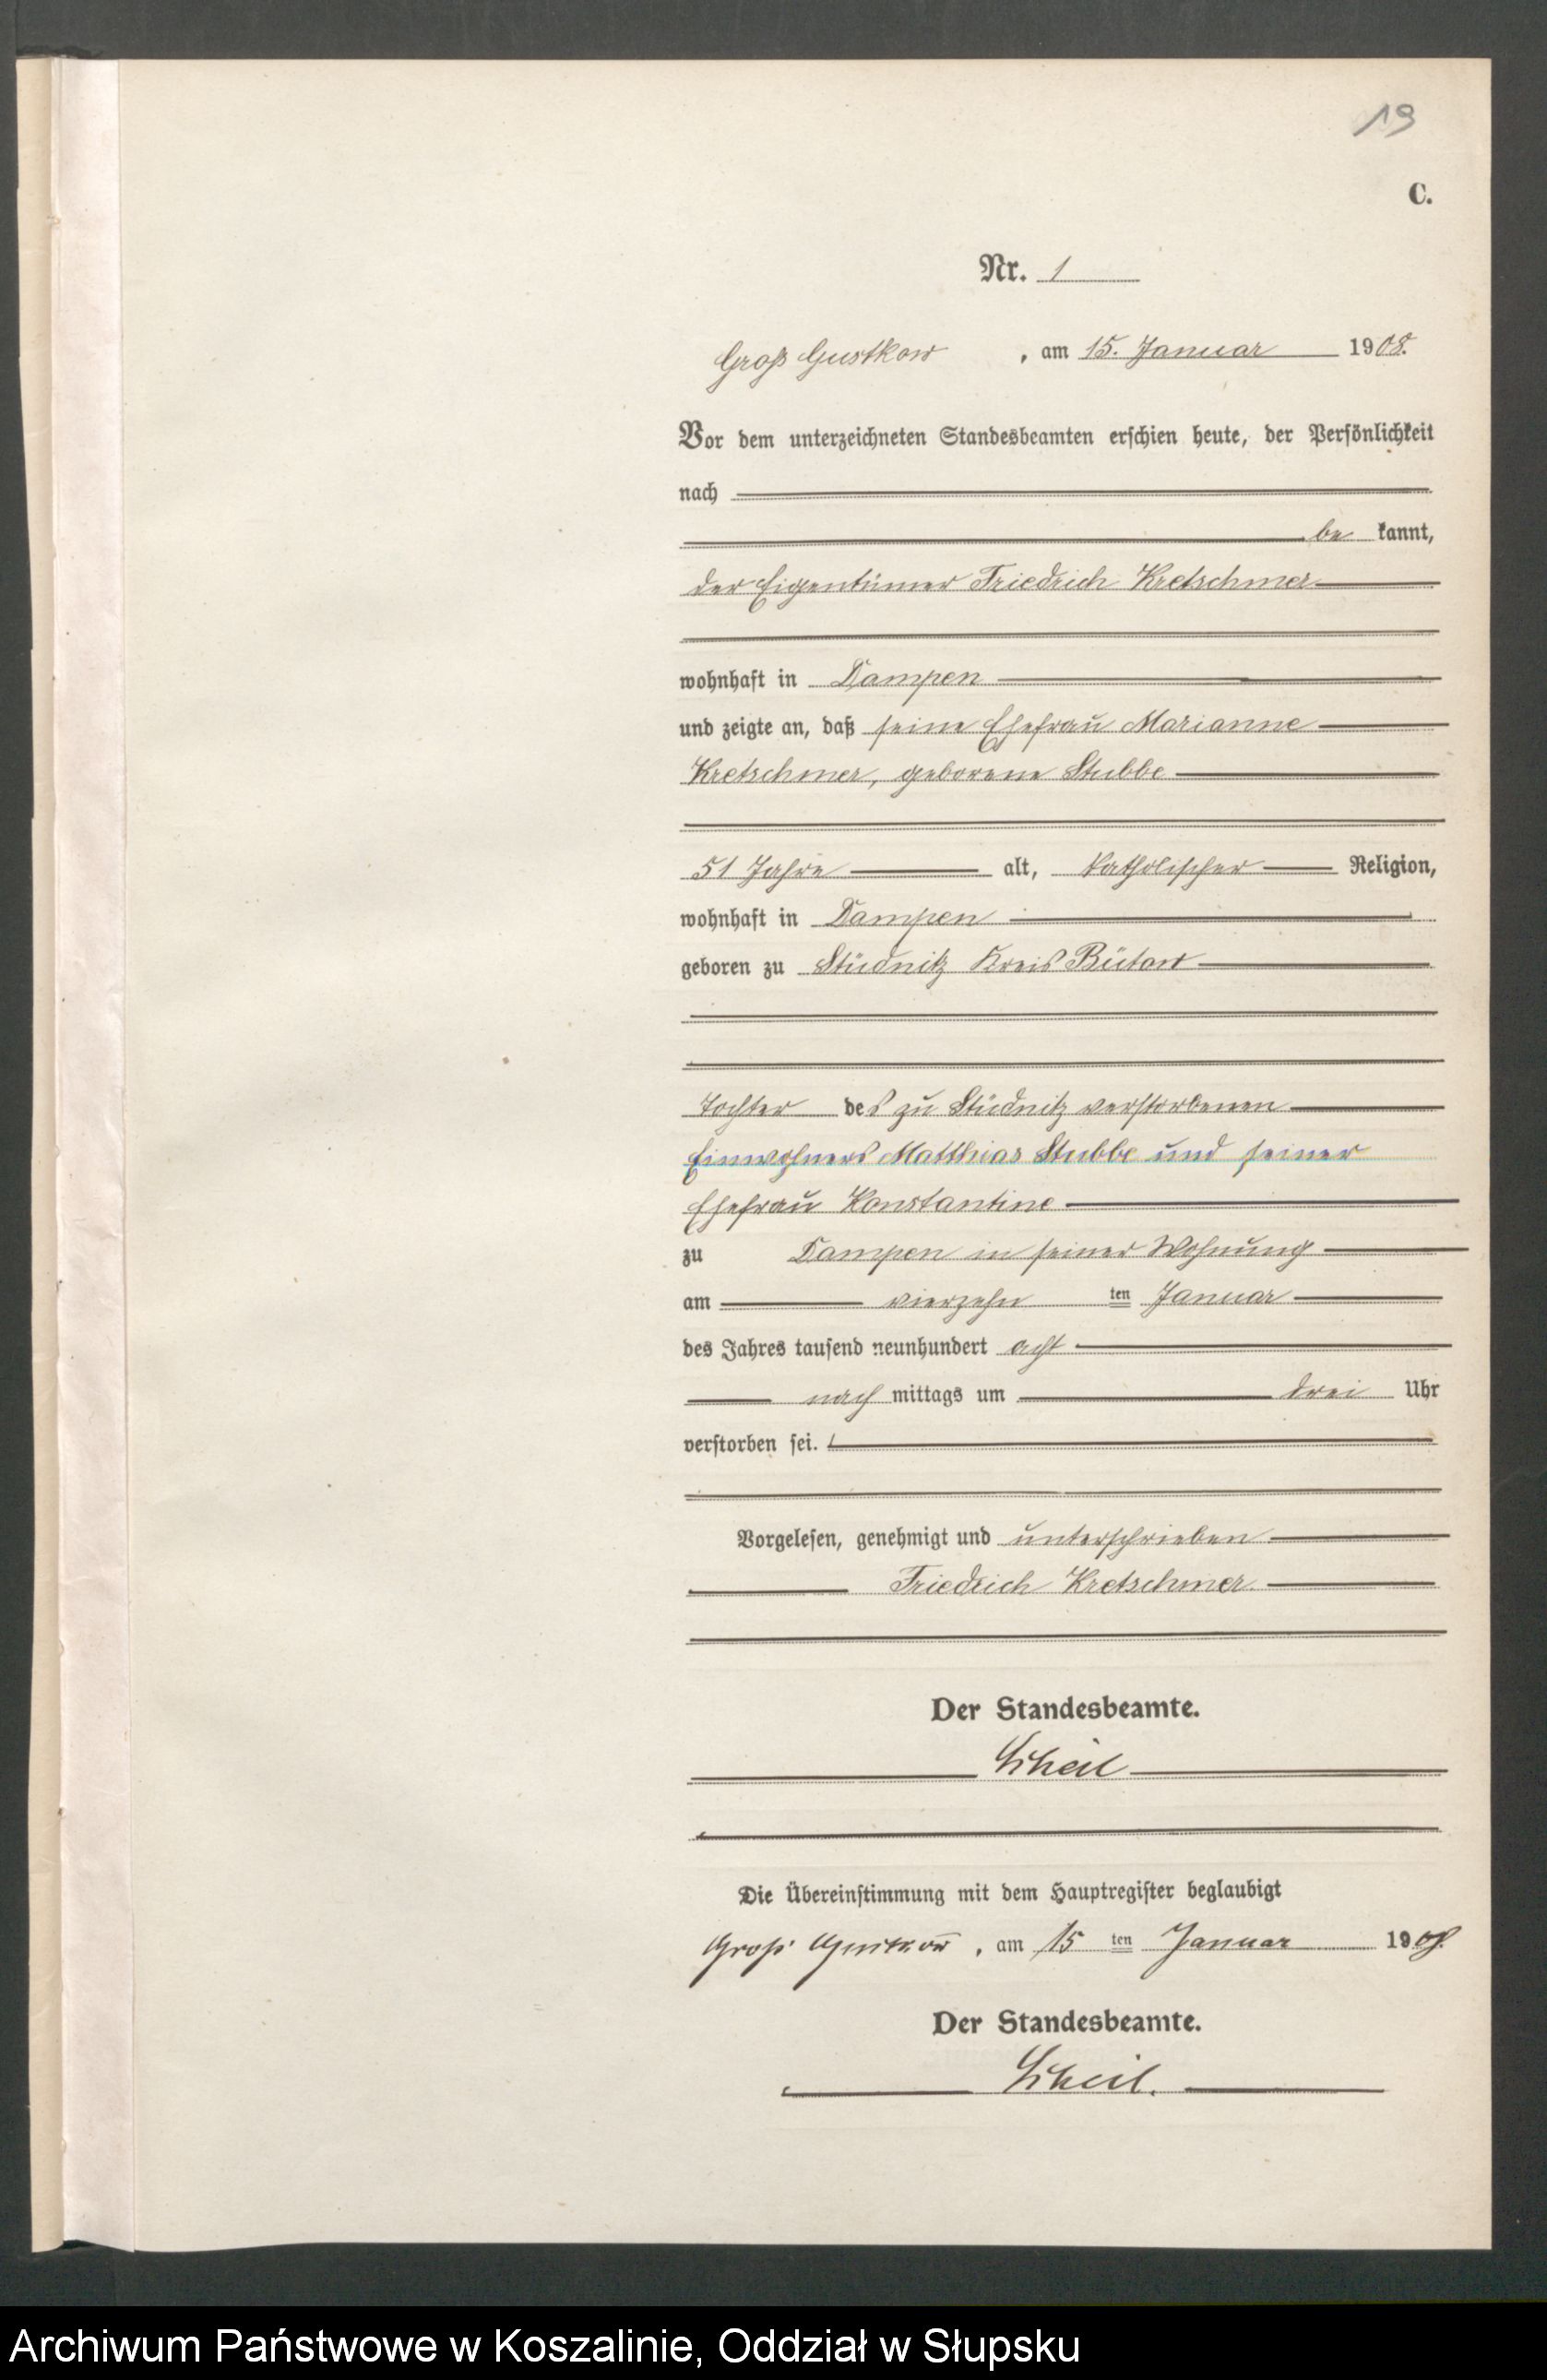 19
C.
Nr. 1
Groß Gustkow, am 15. Januar 1908.
Vor dem unterzeichneten Standesbeamten erschien heute, der Persönlichkeit
nach
be kannt,
der Eigentümer Friedrich Kretschmer
wohnhaft in Dampen
und zeigte an, daß seine Ehefrau Marianne
Kretschmer, geborene Stubbe
51 Jahre alt, katholischer Religion,
wohnhaft in Dampen
geboren zu Stüdnitz Kreis Bütow
Tochter des zu Stüdnitz verstorbenen
Einwohners Matthias Stubbe und seiner
Ehefrau Konstantine
zu Dampen in seiner Wohnung
am vierzehn ten Januar
des Jahres tausend neunhundert acht
nach mittags um drei Uhr
verstorben sei.
Vorgelesen, genehmigt und unterschrieben
Friedrich Kretschmer.
Der Standesbeamte.
Scheil
Die Übereinstimmung mit dem Hauptregister beglaubigt
Groß Gustkow, am 15 ten Januar 1908.
Der Standesbeamte.
Scheil.
Archiwum Państwowe w Koszalinie, Oddział w Słupsku